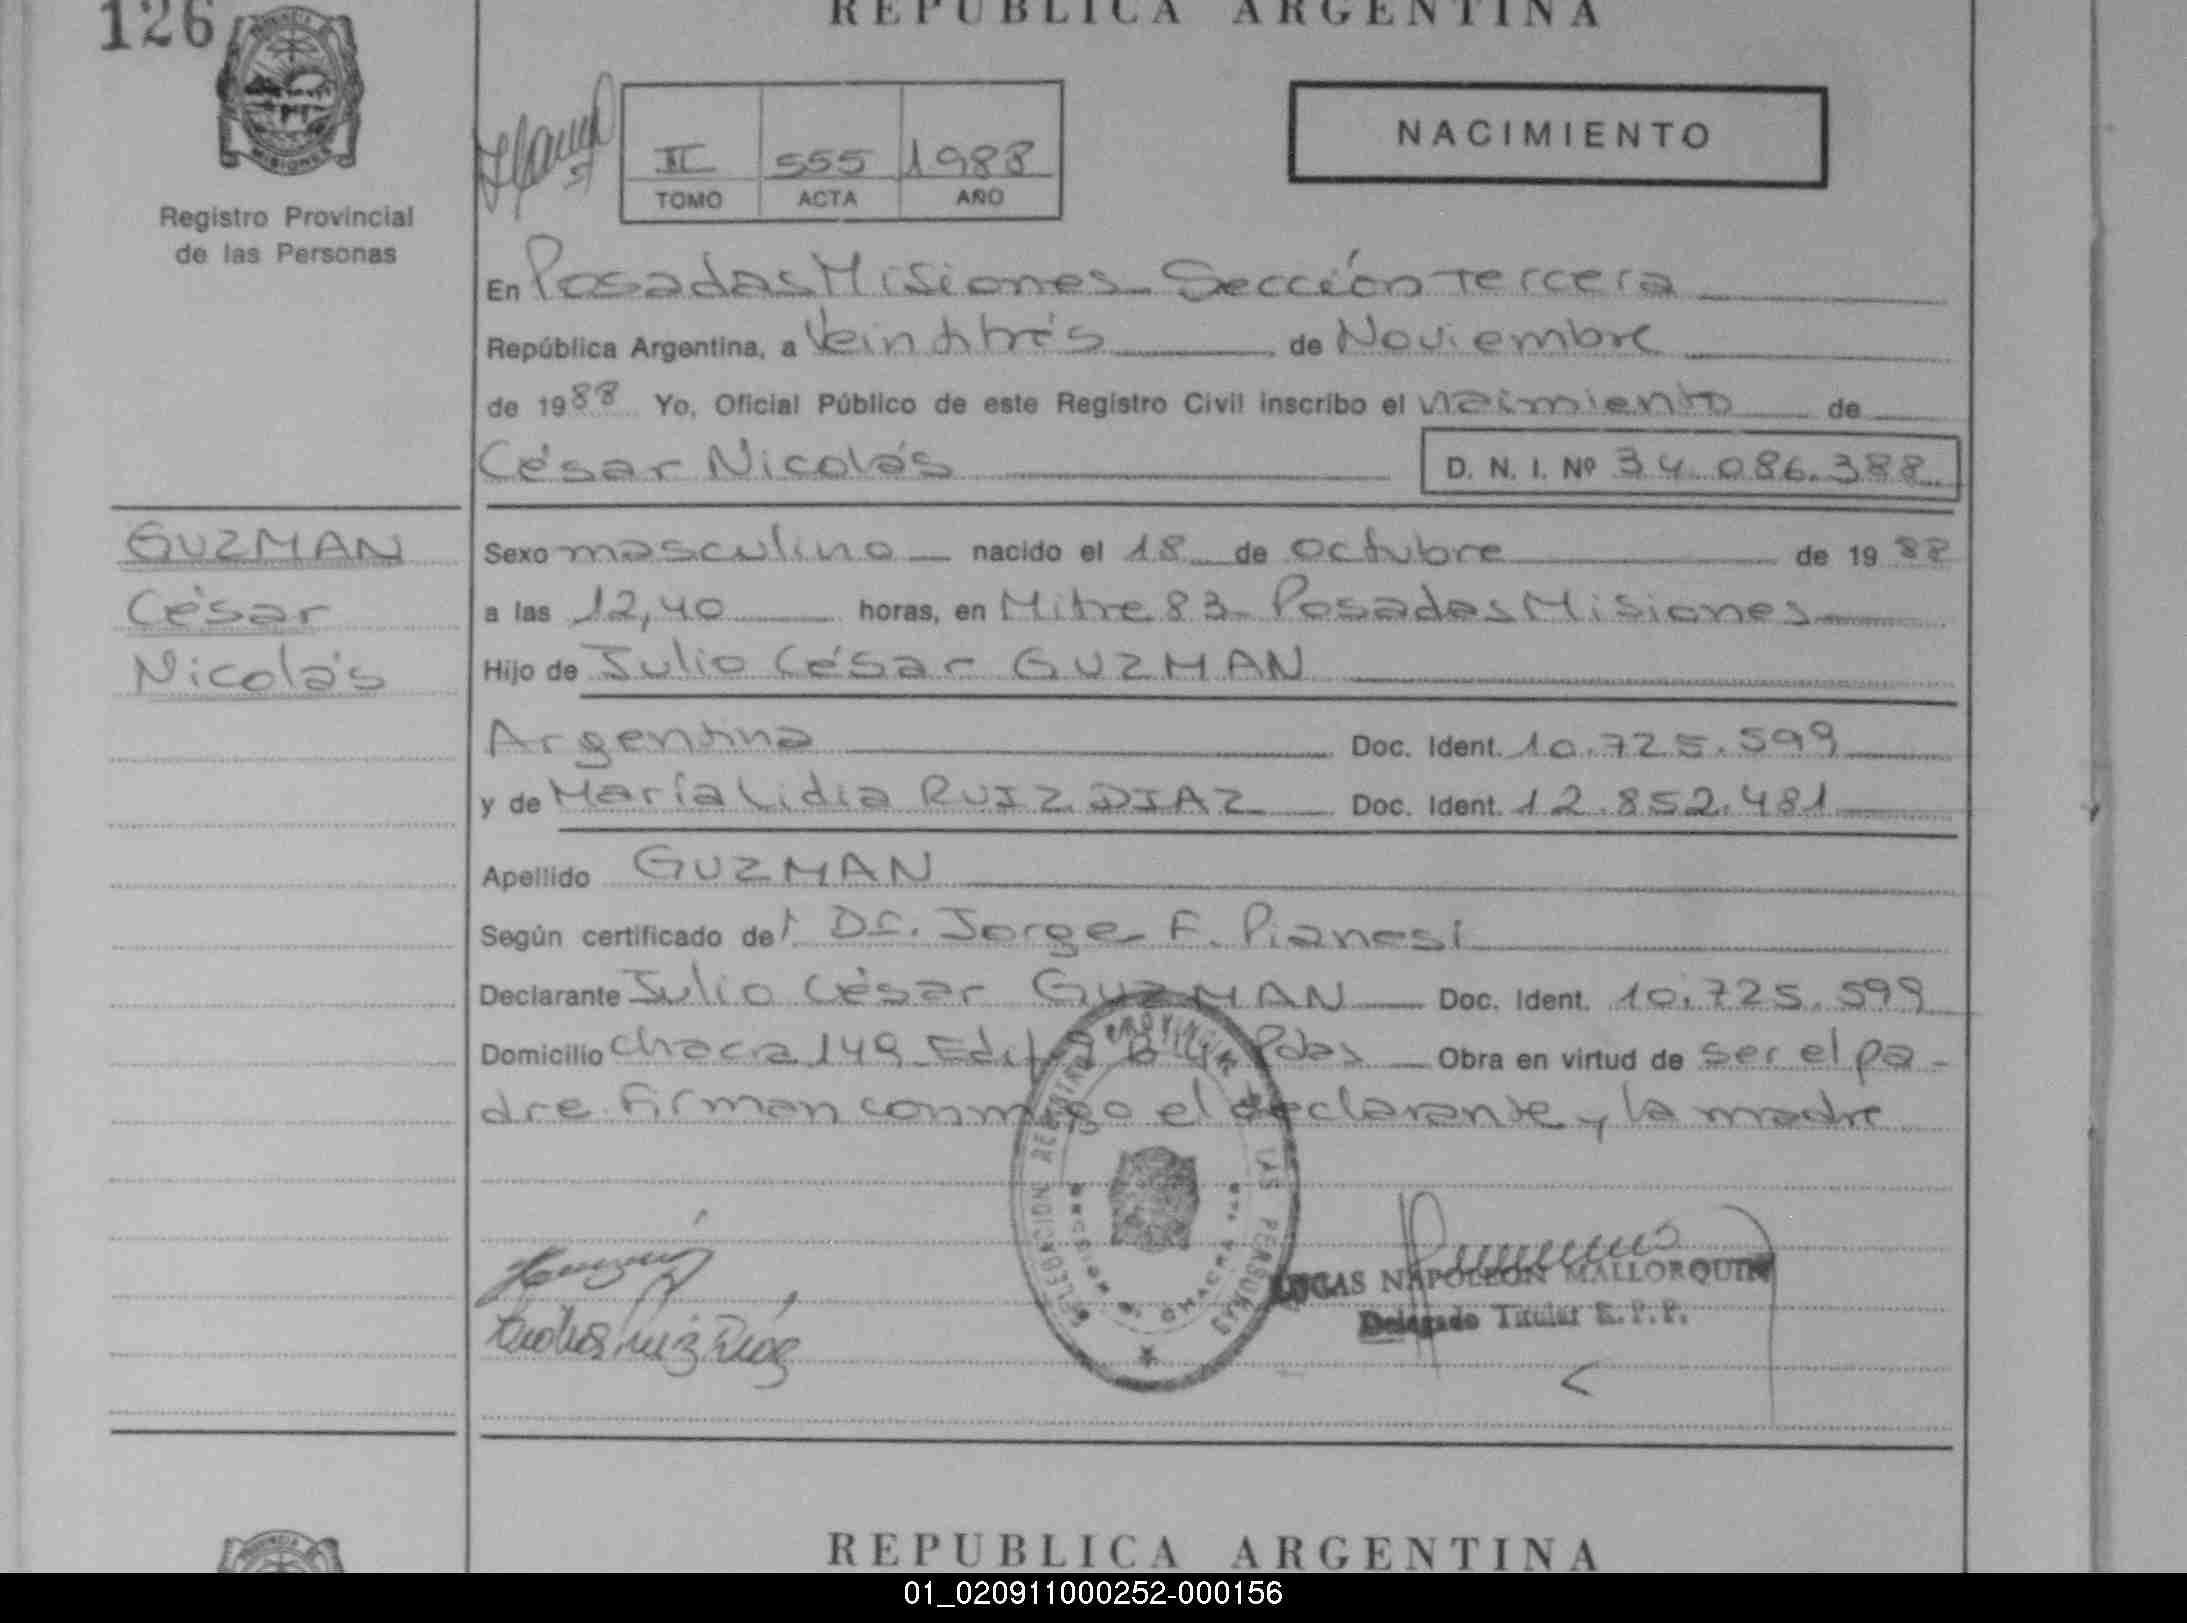 126
REPUBLICA ARGENTINA
MISIONES
Registro Provincial
de las Personas
II 555 1988
TOMO ACTA AÑO
NACIMIENTO
En Posadas Misiones Sección Tercera
República Argentina, a Veintitrés de Noviembre
de 1988 Yo, Oficial Público de este Registro Civil inscribo el nacimiento de
César Nicolás D. N. I. Nº 34.086.388
GUZMAN
César
Nicolás
Sexo masculino nacido el 18 de octubre de 1988
a las 12,40 horas, en Mitre 83 Posadas Misiones
Hijo de Julio César GUZMAN
Argentina Doc. Ident. 10.725.599
y de María Lidia RUIZ DIAZ Doc. Ident. 12.852.481
Apellido GUZMAN
Según certificado del Dr. Jorge F. Pianesi
Declarante Julio César GUZMAN Doc. Ident. 10.725.599
Domicilio Chacra 149 Pdas Obra en virtud de ser el pa-
dre. Firman conmigo el declarante y la madre
DELEGACION REGISTRO PROVINCIAL DE LAS PERSONAS
LUCAS NAPOLEON MALLORQUIN
Delegado Titular R.P.P.
REPUBLICA ARGENTINA
01_020911000252-000156